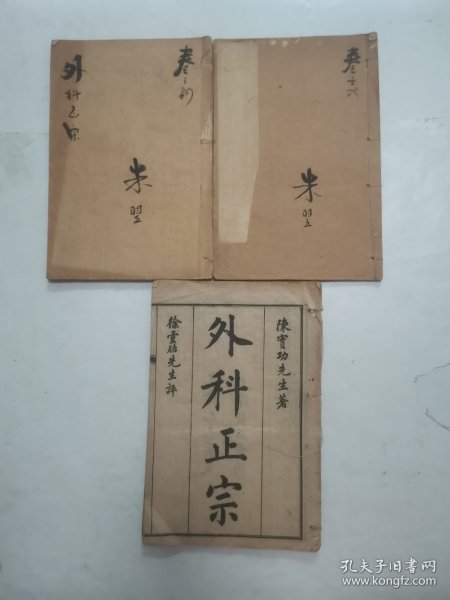 外科正宗
朱翌
朱翌
陳實功先生著
外科正宗
徐靈胎先生評
孔夫子旧书网
www.kongfz.com